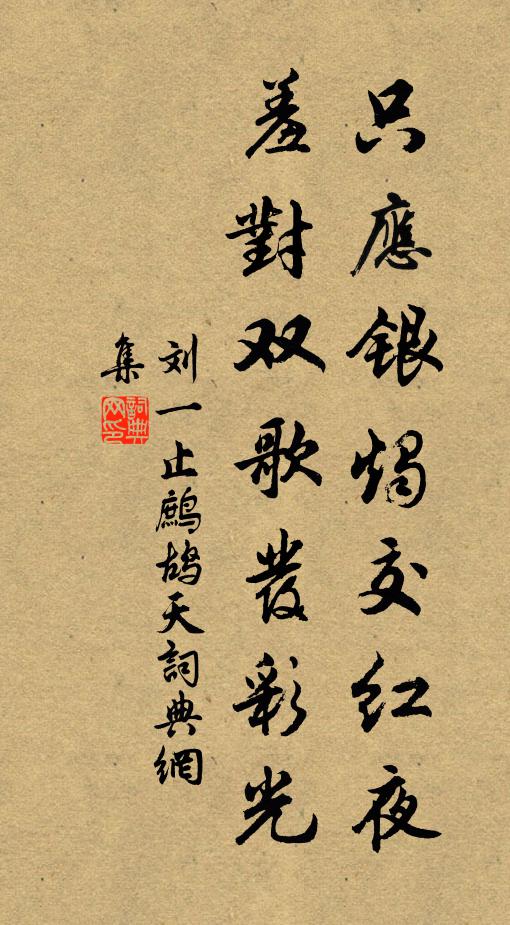 只應銀燭交红夜
羞對双歌發彩光
刘一止鷓鴣天詞典網
集
詞典网印